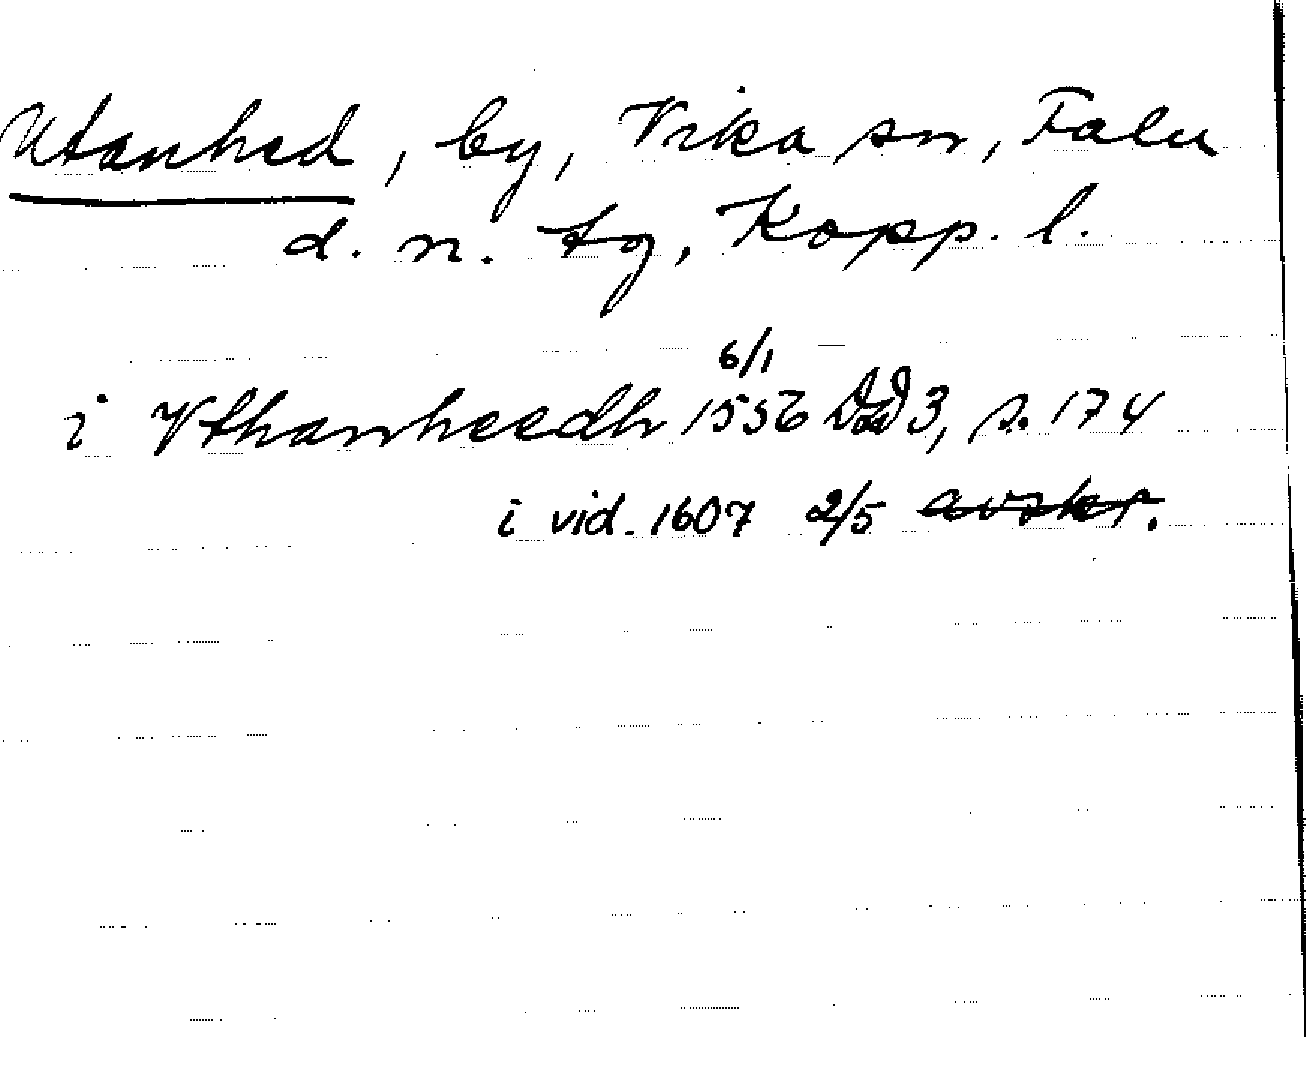 Utanhed, by, Vika sn, Falu
d. n. tg, Kopp. l.
6/1
i Vthanheedh 1556 DD 3, s. 174
i vid. 1607 2/5 avskr.